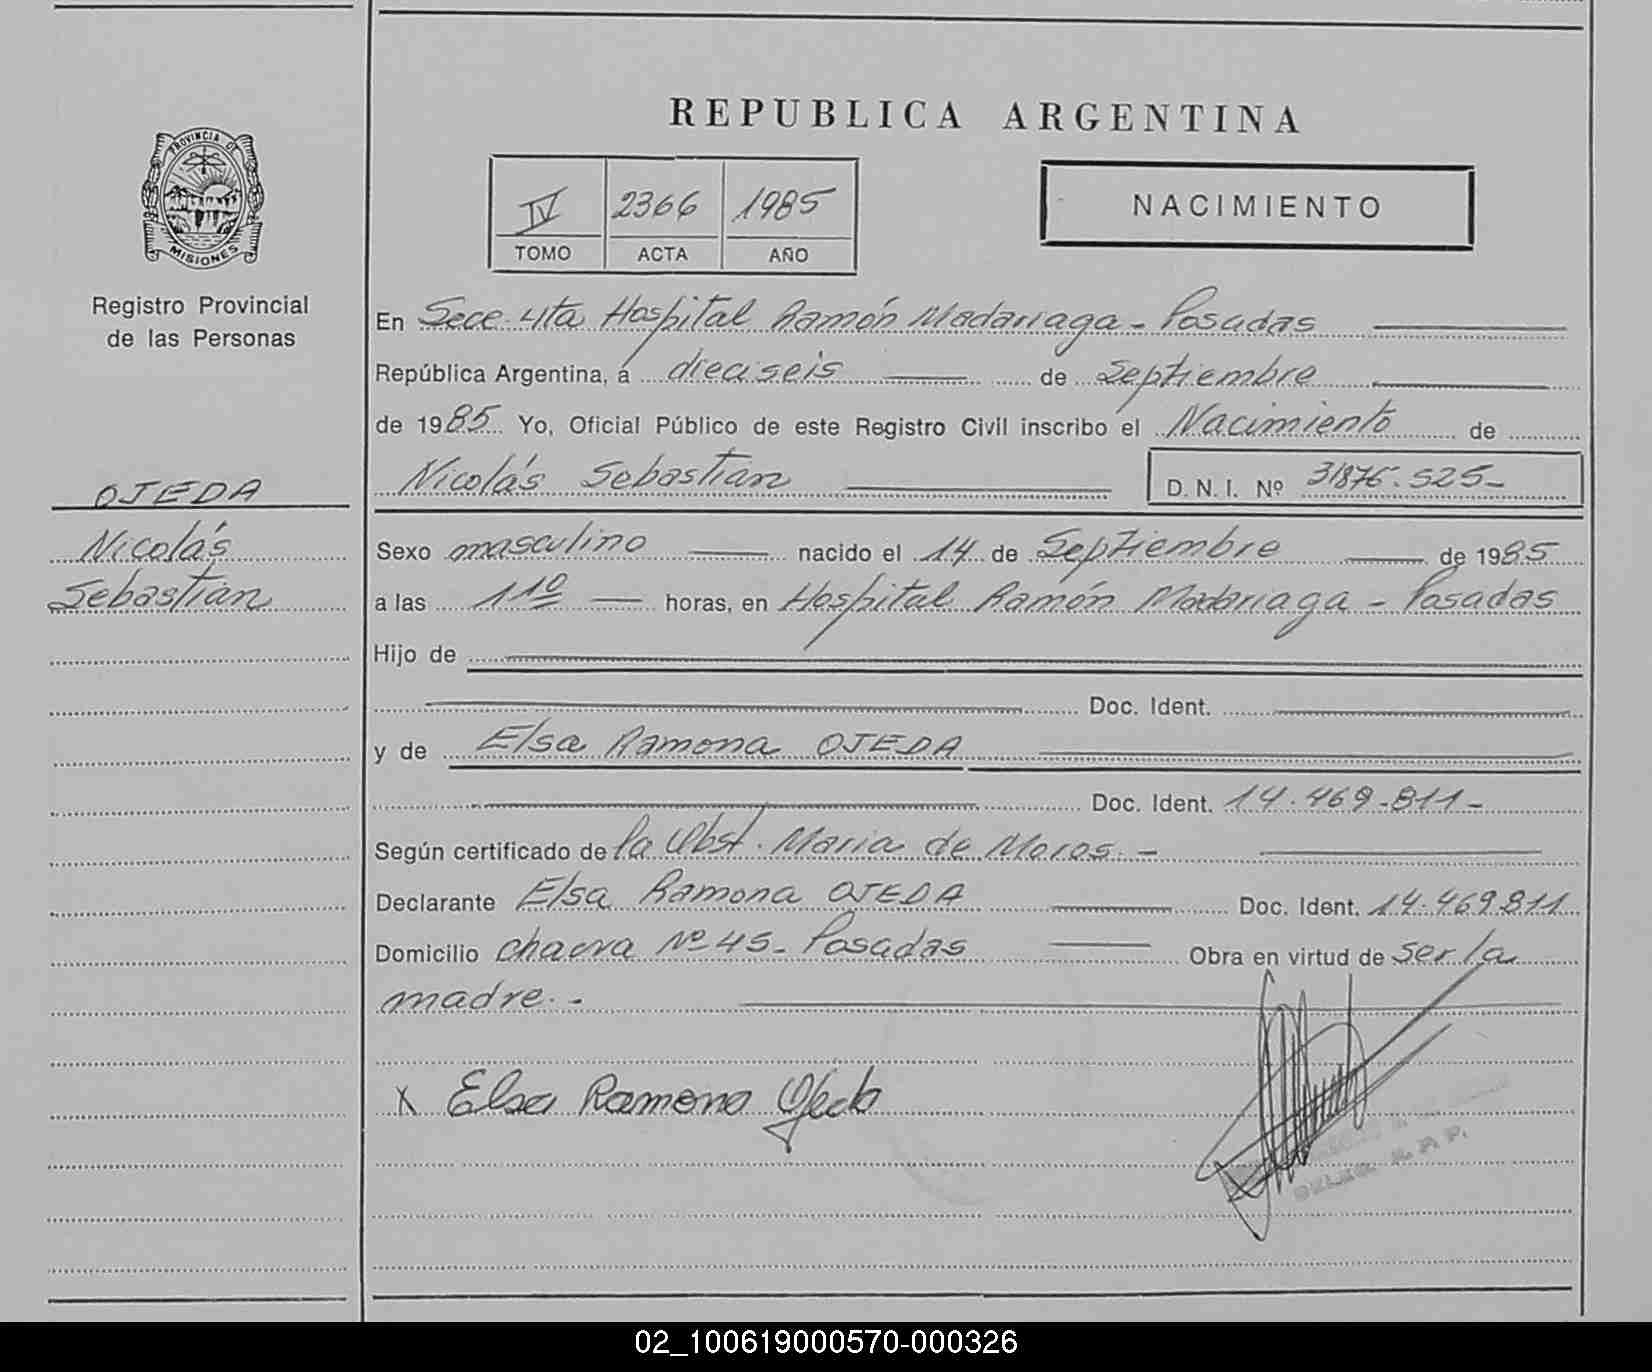 REPUBLICA ARGENTINA
PROVINCIA DE
MISIONES
Registro Provincial
de las Personas
IV 2366 1985
TOMO ACTA AÑO
NACIMIENTO
En Secc. 4ta Hospital Ramón Madariaga - Posadas
República Argentina, á dieciseis de Septiembre
de 1985 Yo, Oficial Público de este Registro Civil inscribo el Nacimiento de
Nicolás Sebastian D. N. I. Nº 31876.525-
OJEDA
Nicolás
Sebastian
Sexo masculino nacido el 14 de Septiembre de 1985
a las 11º horas, en Hospital Ramón Madariaga - Posadas
Hijo de
Doc. Ident.
y de Elsa Ramona OJEDA
Doc. Ident. 14.469.811-
Según certificado de la Obst. Maria de Moros. -
Declarante Elsa Ramona OJEDA Doc. Ident. 14.469811
Domicilio chacra Nº 45- Posadas Obra en virtud de ser la
madre. -
x Elsa Ramona Ojeda
02_100619000570-000326